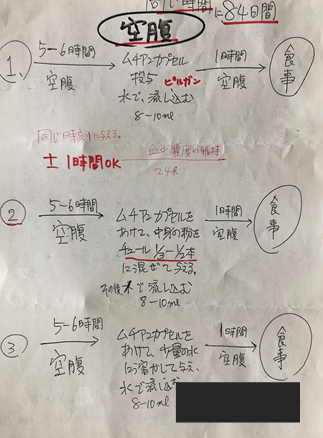 同じ時間に84日間
空腹
① 5-6時間
空腹
ムチアユカプセル
投与 ピルガン
水で、流し込む
8-10ml
1時間
空腹
食事
同じ時刻に与える。
± 1時間OK
血中濃度の維持
24h
② 5-6時間
空腹
ムチアユカプセルを
あけて、中身の粉を
チュール 1/3-1/2本
に混ぜて与える。
その後水で流し込む
8-10ml
1時間
空腹
食事
③ 5-6時間
空腹
ムチアユカプセルを
あけて、少量の水
に溶かして与え、
水で流し込む
8-10ml
1時間
空腹
食事